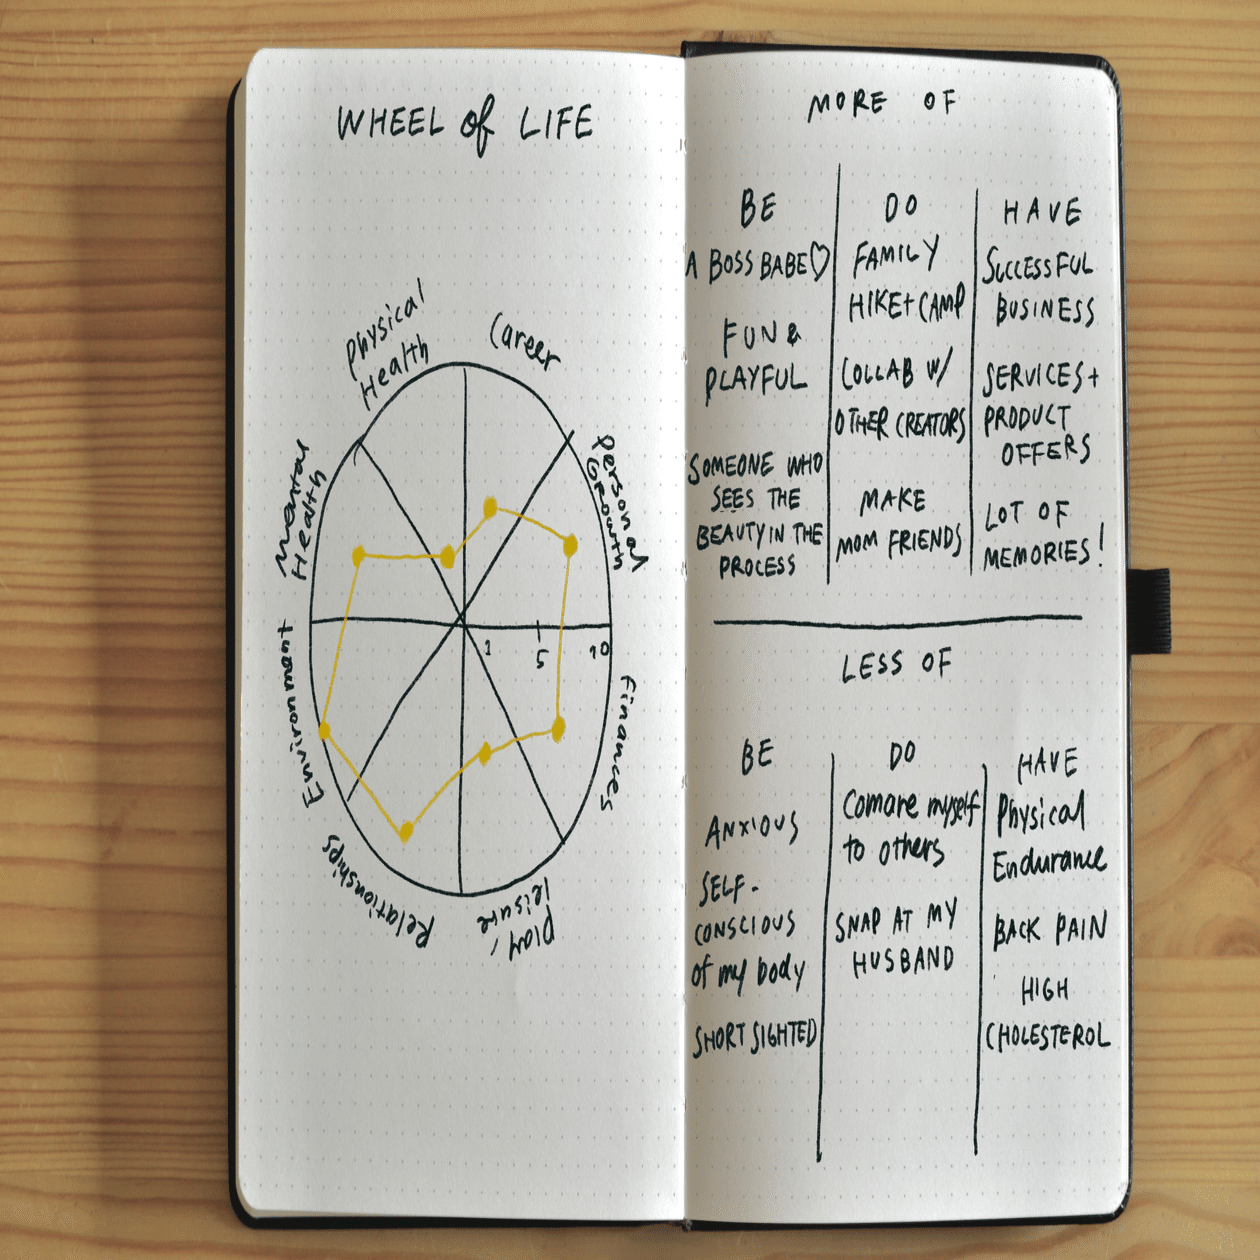 WHEEL of LIFE
Physical
Health
Career
Personal
Growth
Finances
Play/
leisure
Relationships
Environment
Mental
Health
1
5
10
MORE OF
BE
A BOSS BABE♡
FUN &
PLAYFUL
SOMEONE WHO
SEES THE
BEAUTY IN THE
PROCESS
DO
FAMILY
HIKE+CAMP
COLLAB W/
OTHER CREATORS
MAKE
MOM FRIENDS
HAVE
SUCCESSFUL
BUSINESS
SERVICES+
PRODUCT
OFFERS
LOT OF
MEMORIES!
LESS OF
BE
ANXIOUS
SELF-
CONSCIOUS
of my body
SHORT SIGHTED
DO
Comare myself
to others
SNAP AT MY
HUSBAND
HAVE
Physical
Endurance
BACK PAIN
HIGH
CHOLESTEROL